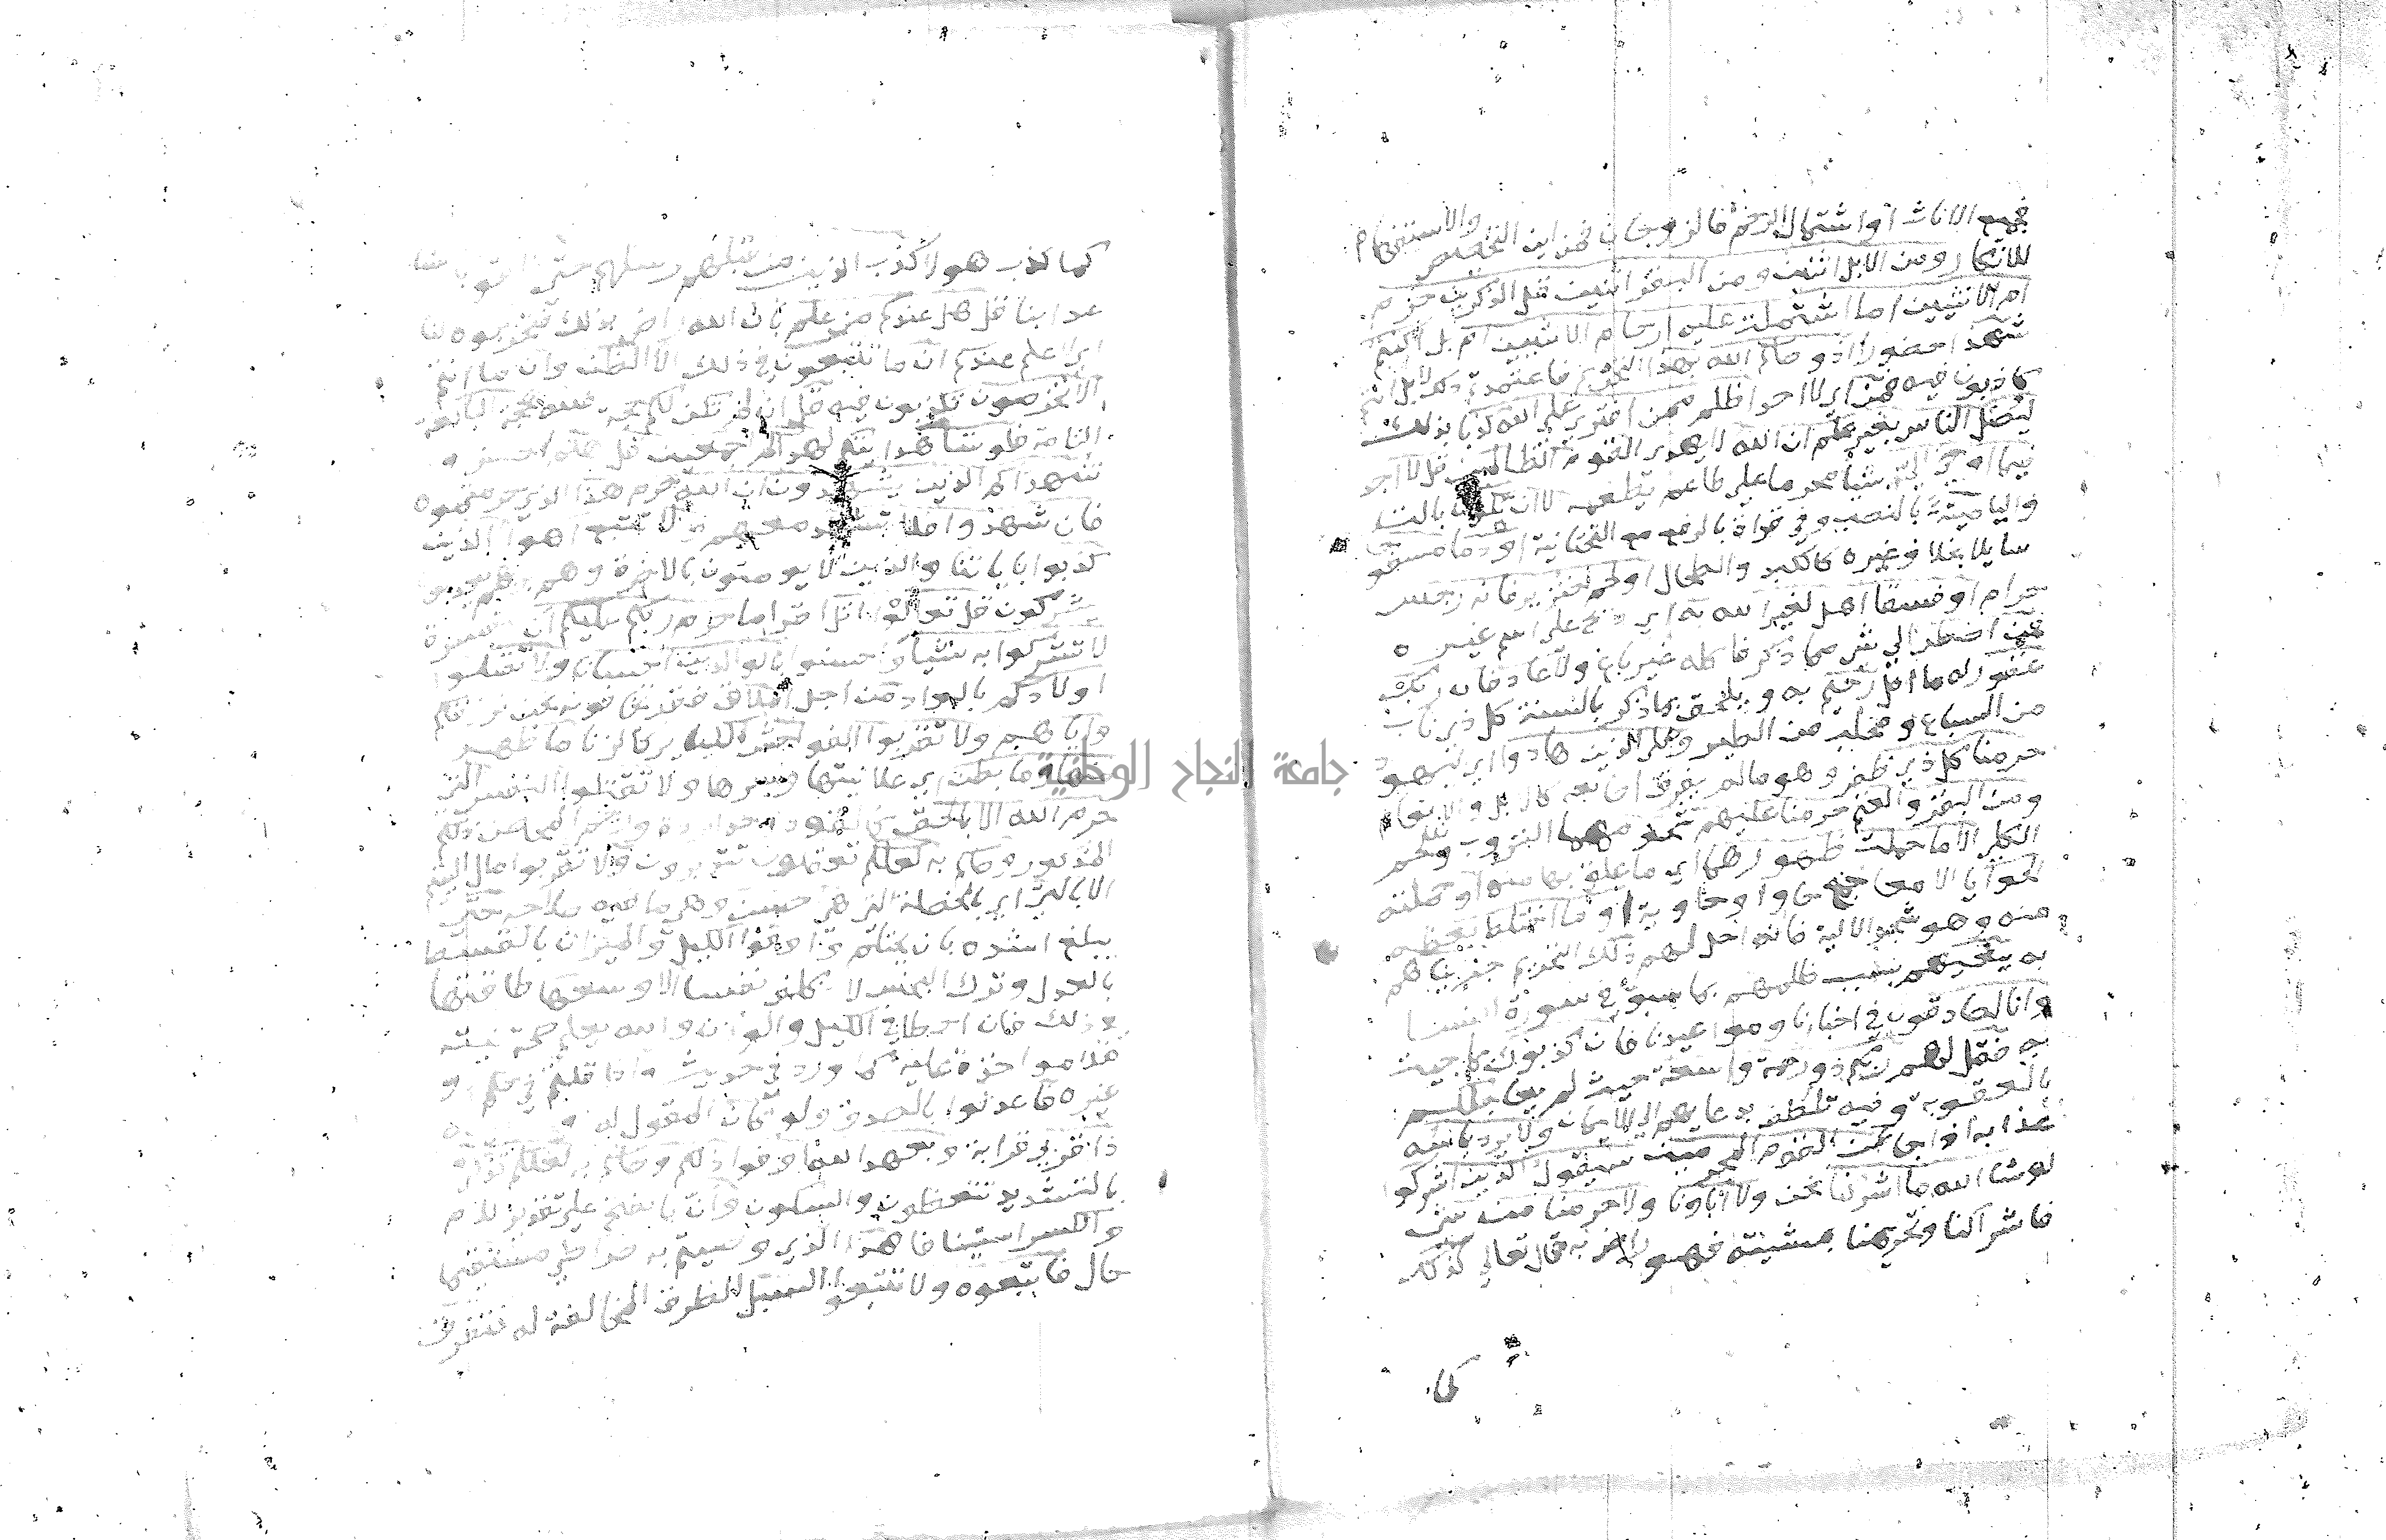 فجميع الاناث او اشتمال الرحم فالزوجان فمن اين التخصيص والاستفهام
للانكار ومن الابل اثنين ومن البقر اثنين قل الذكرين حرم
ام الانثيين اما اشتملت عليه ارحام الانثيين ام بل كنتم
شهدا حضورا اذ وصاكم الله بهذا التحريم فاعتمدتم ذلك لا بل انتم
كاذبون فيه فمن اي لا احد اظلم ممن افترى على الله كذبا بذلك
ليضل الناس بغير علم ان الله لا يهدي القوم الظالمين قل لا اجد
فيما اوحي الي شيا محرما على طاعم يطعمه الا ان تكون بالتا
واليا ميتة بالنصب وفي قراة بالرفع مع التحتانية او دما مسفوحا
سايلا بخلاف غيره كالكبد والطحال او لحم خنزير فانه رجس
حرام او فسقا اهل لغير الله به اي ذبح على اسم غيره
فمن اضطر الى شي مما ذكر فاكله غير باغ ولا عاد فان ربك
غفور له ما اكل رحيم به ويلحق بما ذكر بالسنة كل ذي ناب
من السباع ومخلب من الطير وعلى الذين هادوا اي اليهود
حرمنا كل ذي ظفر وهو مالم يفرق اصابعه كالابل والانعام
ومن البقر والغنم حرمنا عليهم شحومهما الثروب وشحم
الكلى الا ما حملت ظهورهما اي ما علق بها منه او حملته
الحوايا الامعا جمع حاويا او حاوية او ما اختلط بعظم
منه وهو شحم الالية فانه احل لهم ذلك التحريم جزيناهم
به ببغيهم بسبب ظلمهم بما سبق في سورة النسا
وانا لصادقون في اخبارنا ومواعيدنا فان كذبوك فيما جيت
به فقل لهم ربكم ذو رحمة واسعة حيث لم يعاجلكم
بالعقوبة وفيه تلطف بدعايهم الى الايمان ولا يرد باسه
عذابه اذا جا عن القوم المجرمين سيقول الذين اشركوا
لو شا الله ما اشركنا نحن ولا اباونا ولا حرمنا من شي
فاشراكنا وتحريمنا بمشيئته فهو راض به قال تعالى كذلك
كما
كما كذب هولا كذب الذين من قبلهم رسلهم حتى ذاقوا باسنا
عذابنا قل هل عندكم من علم بان الله راض بذلك فتخرجوه لنا
اي لا علم عندكم ان ما تتبعون في ذلك الا الظن وان ما انتم
الا تخرصون تكذبون فيه قل ان لم تكن لكم حجة فلله الحجة البالغة
التامة فلو شا هدايتكم لهداكم اجمعين قل هلم احضروا
شهداكم الذين يشهدون ان الله حرم هذا الذي حرمتموه
فان شهدوا فلا تشهد معهم ولا تتبع اهوا الذين
كذبوا باياتنا والذين لا يومنون بالاخرة وهم بربهم يعدلون
يشركون قل تعالوا اتل اقرا ما حرم ربكم عليكم ان مفسرة
لا تشركوا به شيا واحسنوا بالوالدين احسانا ولا تقتلوا
اولادكم بالواد من اجل املاق فقر تخافونه نحن نرزقكم
واياهم ولا تقربوا الفواحش الكباير كالزنا ما ظهر
منها وما بطن اي علانيتها وسرها ولا تقتلوا النفس التي
حرم الله الا بالحق كالقود وحد الردة ورجم المحصن ذلكم
المذكور وصاكم به لعلكم تعقلون تتدبرون ولا تقربوا مال اليتيم
الا بالتي اي بالخصلة التي هي احسن وهي ما فيه صلاحه حتى
يبلغ اشده بان يحتلم واوفوا الكيل والميزان بالقسط
بالعدل وترك البخس لا نكلف نفسا الا وسعها طاقتها
في ذلك فان اخطا في الكيل والوزن والله يعلم صحة نيته
فلا مواخذة عليه كما ورد في حديث واذا قلتم في حكم او
غيره فاعدلوا بالصدق ولو كان المقول له او عليه
ذا قربى قرابة وبعهد الله اوفوا ذلكم وصاكم به لعلكم تذكرون
بالتشديد تتعظون والسكون وان بالفتح على تقدير اللام
والكسر استينافا هذا الذي وصيتكم به صراطي مستقيما
حال فاتبعوه ولا تتبعوا السبل الطرق المخالفة له فتفرق
جامعة النجاح الوطنية